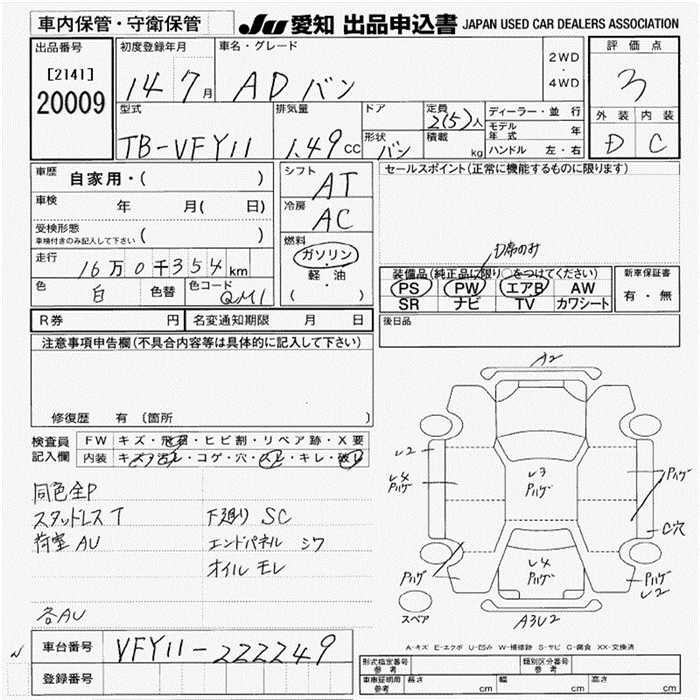 車内保管・守衛保管
JU 愛知 出品申込書 JAPAN USED CAR DEALERS ASSOCIATION
出品番号
[2141]
20009
初度登録年月
14 7月
車名・グレード
AD バン
2WD
・
4WD
評価点
3
外装 内装
D C
型式
TB-VFY11
排気量
1.49CC
ドア
形状
バン
定員
2(5)人
積載
kg
ディーラー・並行
モデル年式 年
ハンドル 左・右
車歴
自家用・( )
車検
年 月( 日)
受検形態
車検付きのみ記入して下さい ( )
走行
16万0千354km
色
白
色替
色コード
QM1
シフト
AT
冷房
AC
燃料
ガソリン
・
軽油
( )
セールスポイント(正常に機能するものに限ります)
D席のみ
装備品(純正品に限り○をつけてください)
PS PW エアB AW
SR ナビ TV カワシート
新車保証書
有・無
R券 円
名変通知期限 月 日
後日品
注意事項申告欄(不具合内容等は具体的に記入して下さい)
修復歴 有 〔箇所 〕
検査員
記入欄
FW キズ・飛石・ヒビ割・リペア跡・X要
内装 キズ・汚レ・コゲ・穴・スレ・キレ・破レ
同色全P
スタッドレスT
荷室AU
F廻り SC
エンドパネル シワ
オイルモレ
各AU
A2
レ2
レ4
Pハゲ
レ3
Pハゲ
Pハゲ
C穴
Pハゲ
レ4
Pハゲ
Pハゲ
レ2
スペア
A3U2
A-キズ E-エクボ U-凹み W-補修跡 S-サビ C-腐食 XX-交換済
N
車台番号
VFY11-222249
登録番号
形式指定番号
参考
類別区分番号
参考
車庫証明用
参考
長さ cm
幅 cm
高さ cm